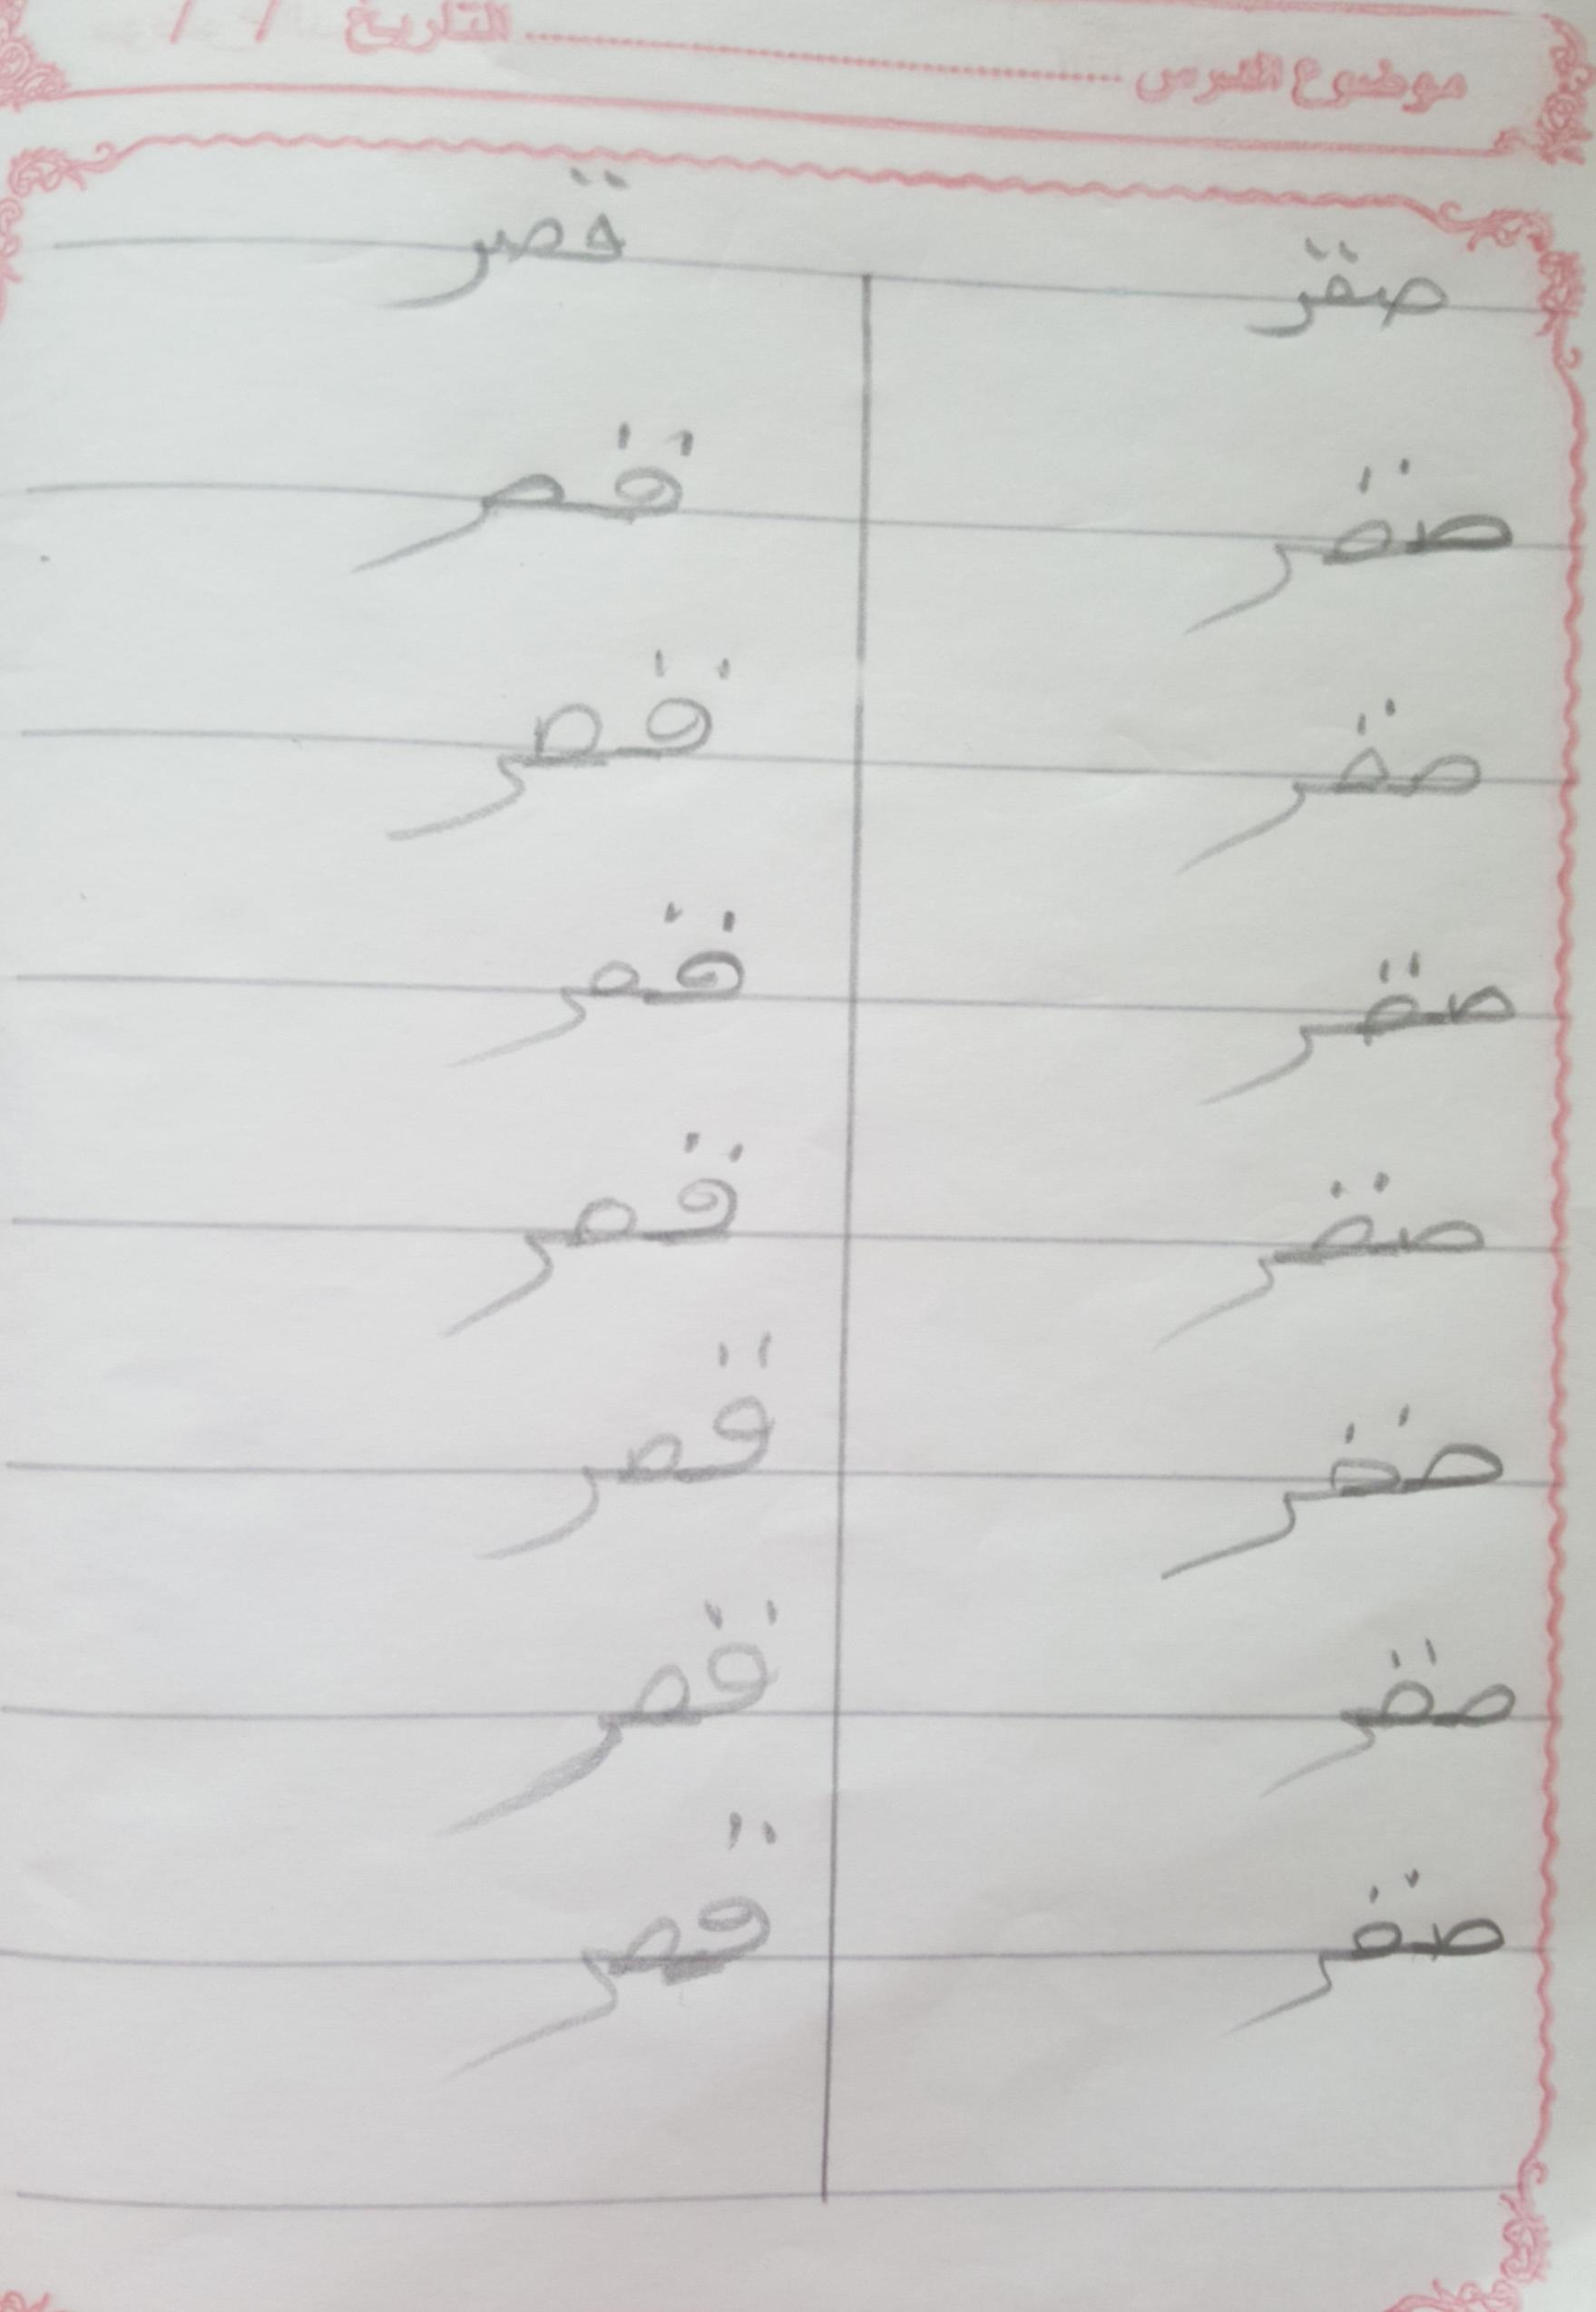 موضوع الدرس ........................ التاريخ / /
صقر قصر
صقر قصر
صقر قصر
صقر قصر
صقر قصر
صقر قصر
صقر قصر
صقر قصر